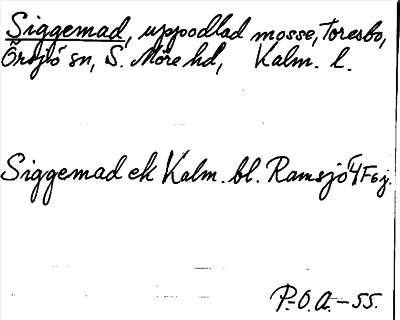 Siggemad, uppodlad mosse, Toresbo,
Örsjö sn, S. Möre hd, Kalm. l.
Siggemad ek Kalm. bl. Ramsjö 4F6j.
P.O.A.-55.